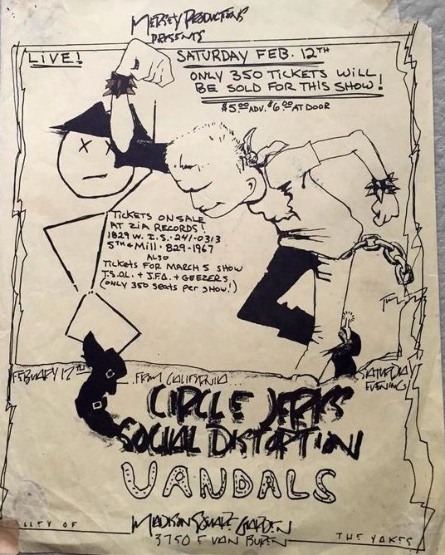 MERSEY PRODUCTIONS
PRESENTS
LIVE!
SATURDAY FEB. 12TH
ONLY 350 TICKETS WILL
BE SOLD FOR THIS SHOW!
$5.00 ADV. $6.00 AT DOOR
TICKETS ON SALE
AT ZIA RECORDS!
1829 W. I.S. · 241-0313
5TH & MILL · 829-1967
ALSO
TICKETS FOR MARCH 5 SHOW
T.S.O.L. + J.F.A. + GEEZERS
(ONLY 350 SEATS PER SHOW!)
FEBUARY 12TH
FROM CALIFORNIA...
SATURDAY
EVENING
CIRCLE JERKS
SOCIAL DISTORTION
VANDALS
MADISON SQUARE GARDEN
3750 E VAN BUREN
OF